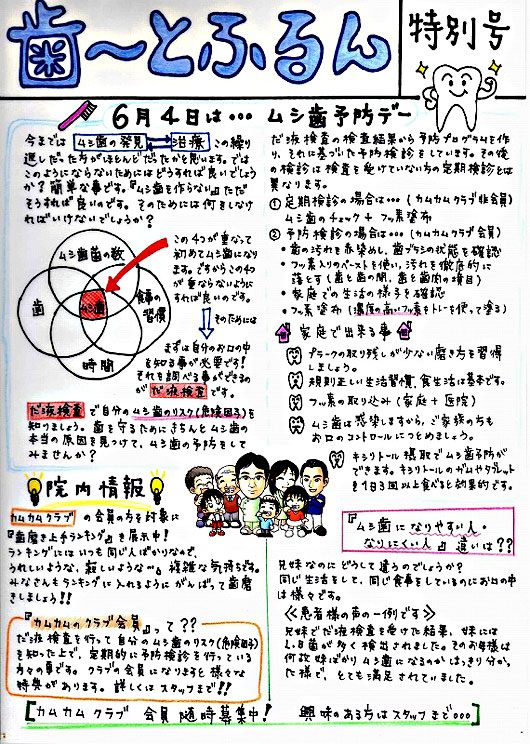 歯〜とふるん
特別号
6月4日は… ムシ歯予防デー
今までは ムシ歯の発見 治療 この繰り
返しだった方がほとんどだったかと思います。では
このようにならないためにはどうすれば良いでしょう
か?簡単な事です。『ムシ歯を作らない』ただ
そうすれば良いのです。そのためには何をしなけ
ればいけないでしょうか?
ムシ歯菌の数
歯
食事の
習慣
ムシ歯
時間
この4つが重なって
初めてムシ歯になり
ます。ですからこの4つ
が重ならないように
すれば良いのです。
そのためには
まずは自分のお口の中
を知る事が必要です!
それを調べる事ができるの
がだ液検査です。
だ液検査で自分のムシ歯のリスク(危険因子)を
知りましょう。歯を守るためにきちんとムシ歯の
本当の原因を見つけて、ムシ歯の予防をして
みませんか?
院内情報
カムカムクラブ の会員の方を対象に
『歯磨き上手ランキング』を展示中!
ランキングにはいつも同じ人ばかりなので、
うれしいような、寂しいような… 複雑な気持ちです。
みなさんもランキングに入れるようにがんばって歯磨
きしましょう!!
『カムカムのクラブ会員』って??
だ液検査を行って自分のムシ歯のリスク(危険因子)
を知った上で、定期的に予防検診を行っている
方々の事です。クラブの会員になりますと様々な
特典があります。詳しくはスタッフまで!!
だ液検査の検査結果から予防プログラムを作
り、それに基づいた予防検診をしています。その後
の検診は検査を受けていない方の定期検診とは
異なります。
① 定期検診の場合は…(カムカムクラブ非会員)
ムシ歯のチェック + フッ素塗布
② 予防検診の場合は…(カムカムクラブ会員)
・歯の汚れを赤染めし、歯ブラシの状態を確認
・フッ素入りのペーストを使い、汚れを徹底的に
落とす(歯と歯の間、歯と歯肉の境目)
・家庭での生活の様子を確認
・フッ素塗布(濃度の高いフッ素をトレーを使って塗る)
家庭で出来る事
プラークの取り残しが少ない磨き方を習得
しましょう。
規則正しい生活習慣、食生活は基本です。
フッ素の取り込み(家庭+医院)
ムシ歯は感染しますから、ご家族の方も
お口のコントロールにつとめましょう。
キシリトール摂取でムシ歯予防が
できます。キシリトールのガムやタブレット
を1日3回以上食べると効果的です。
『ムシ歯になりやすい人・
なりにくい人』違いは??
兄妹なのにどうして違うのでしょうか?
同じ生活をして、同じ食事をしているのにお口の中
は様々です。
≪患者様の声の一例です≫
兄妹でだ液検査を受けた結果、妹には
L.B菌が多く検出されました。そのお母様は
何故妹ばかりムシ歯になるのかはっきり分かっ
た様で、とても満足されていました。
カムカムクラブ 会員随時募集中! 興味のある方はスタッフまで…